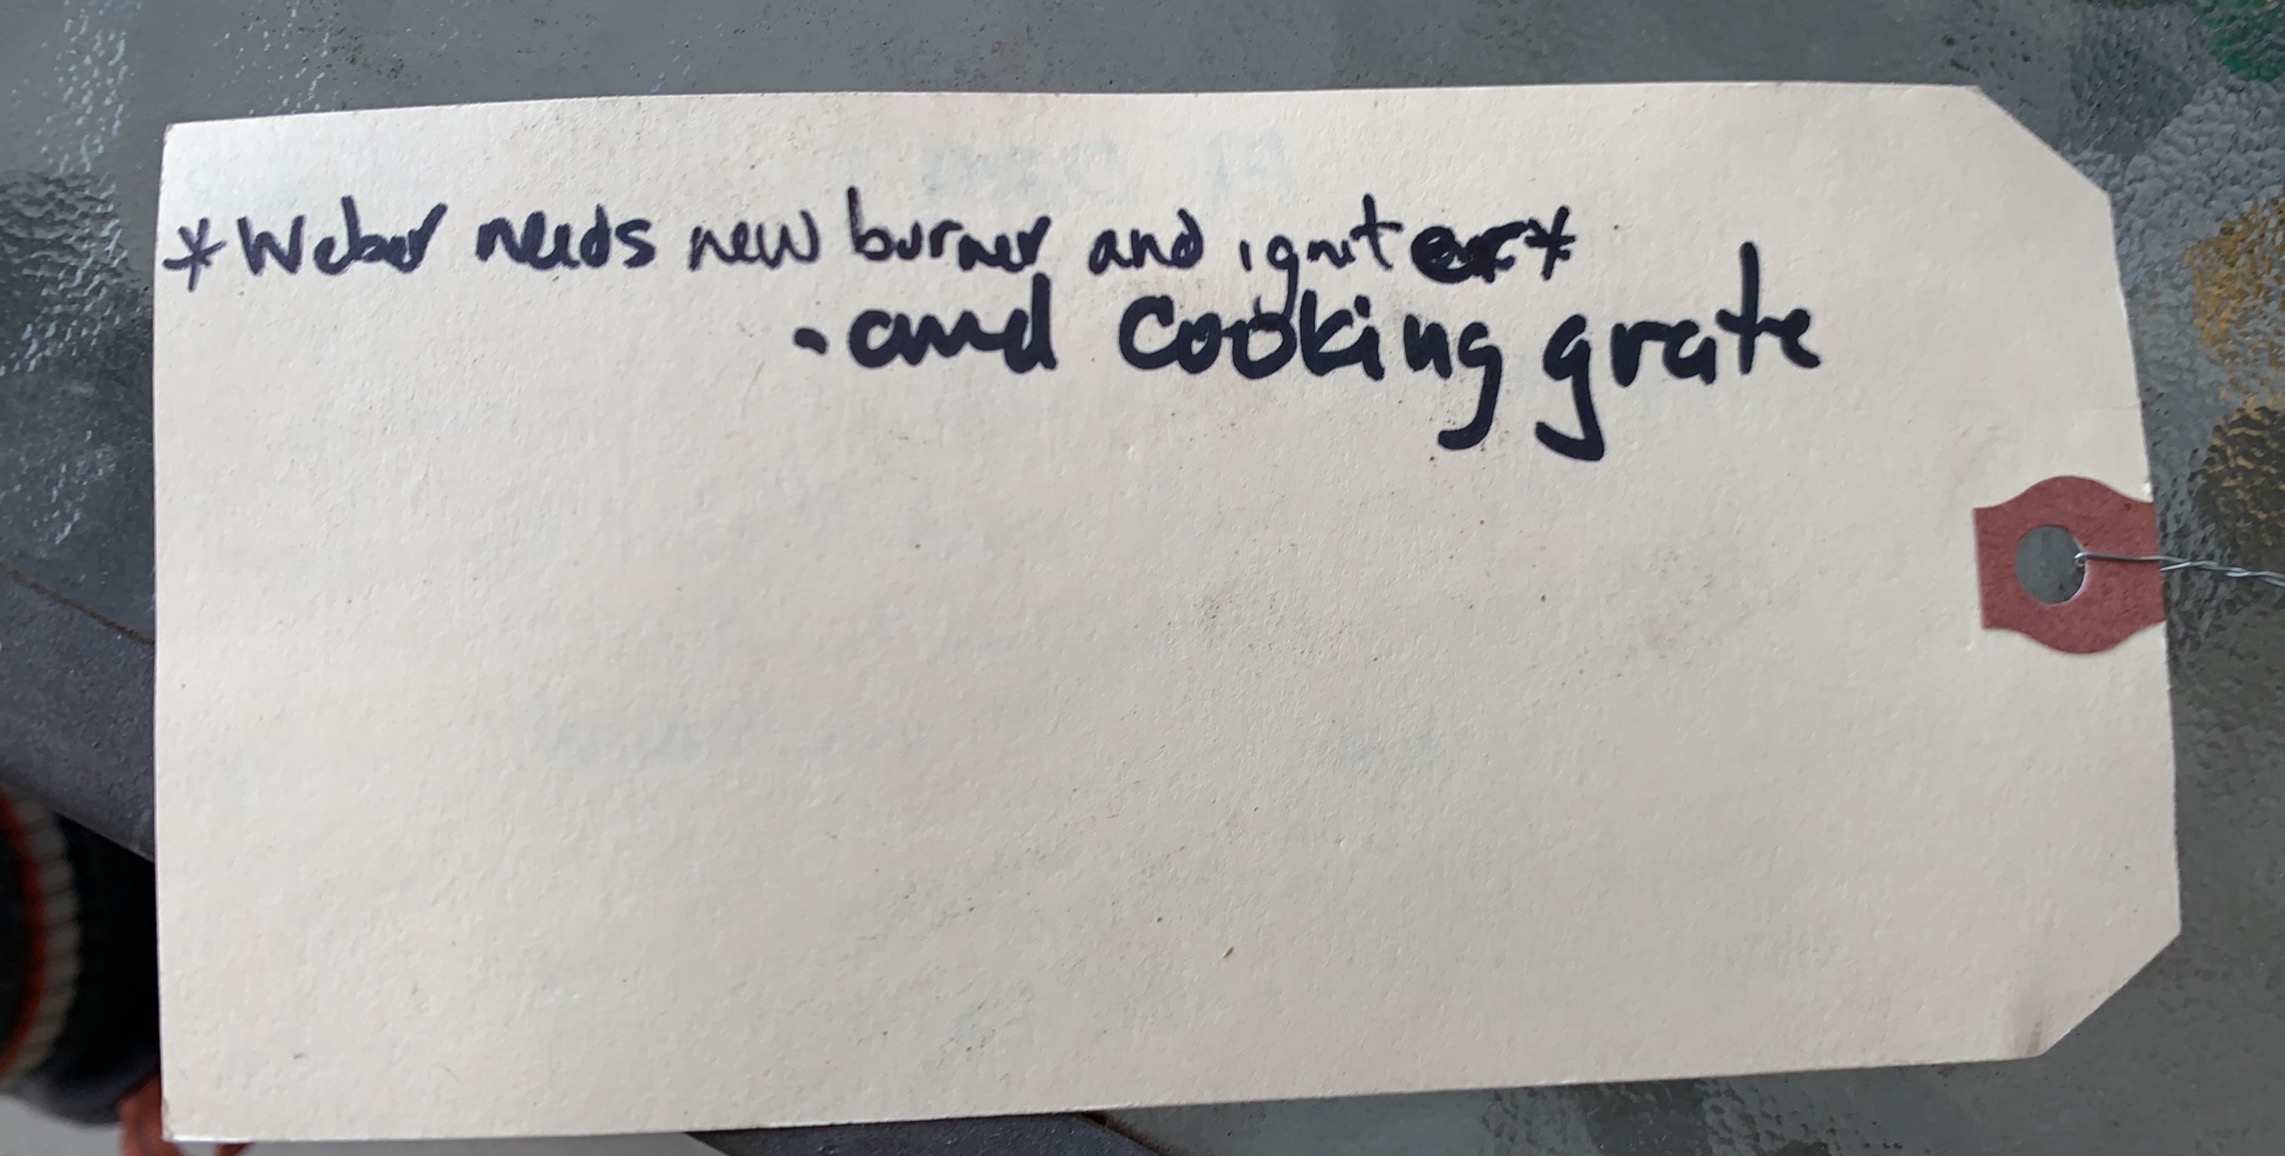 *Weber needs new burner and igniter*
- and cooking grate